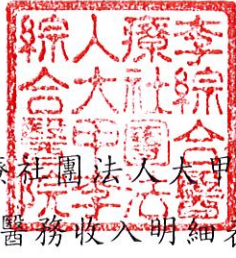 李綜合醫
療社團法
人大甲李
綜合醫院
療社團法人大甲
醫務收入明細表